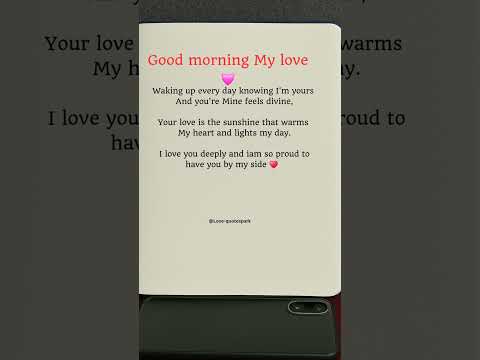 Good morning My love
Waking up every day knowing I'm yours
And you're Mine feels divine,
Your love is the sunshine that warms
My heart and lights my day.
I love you deeply and iam so proud to
have you by my side ❤️
@Love-quotespark